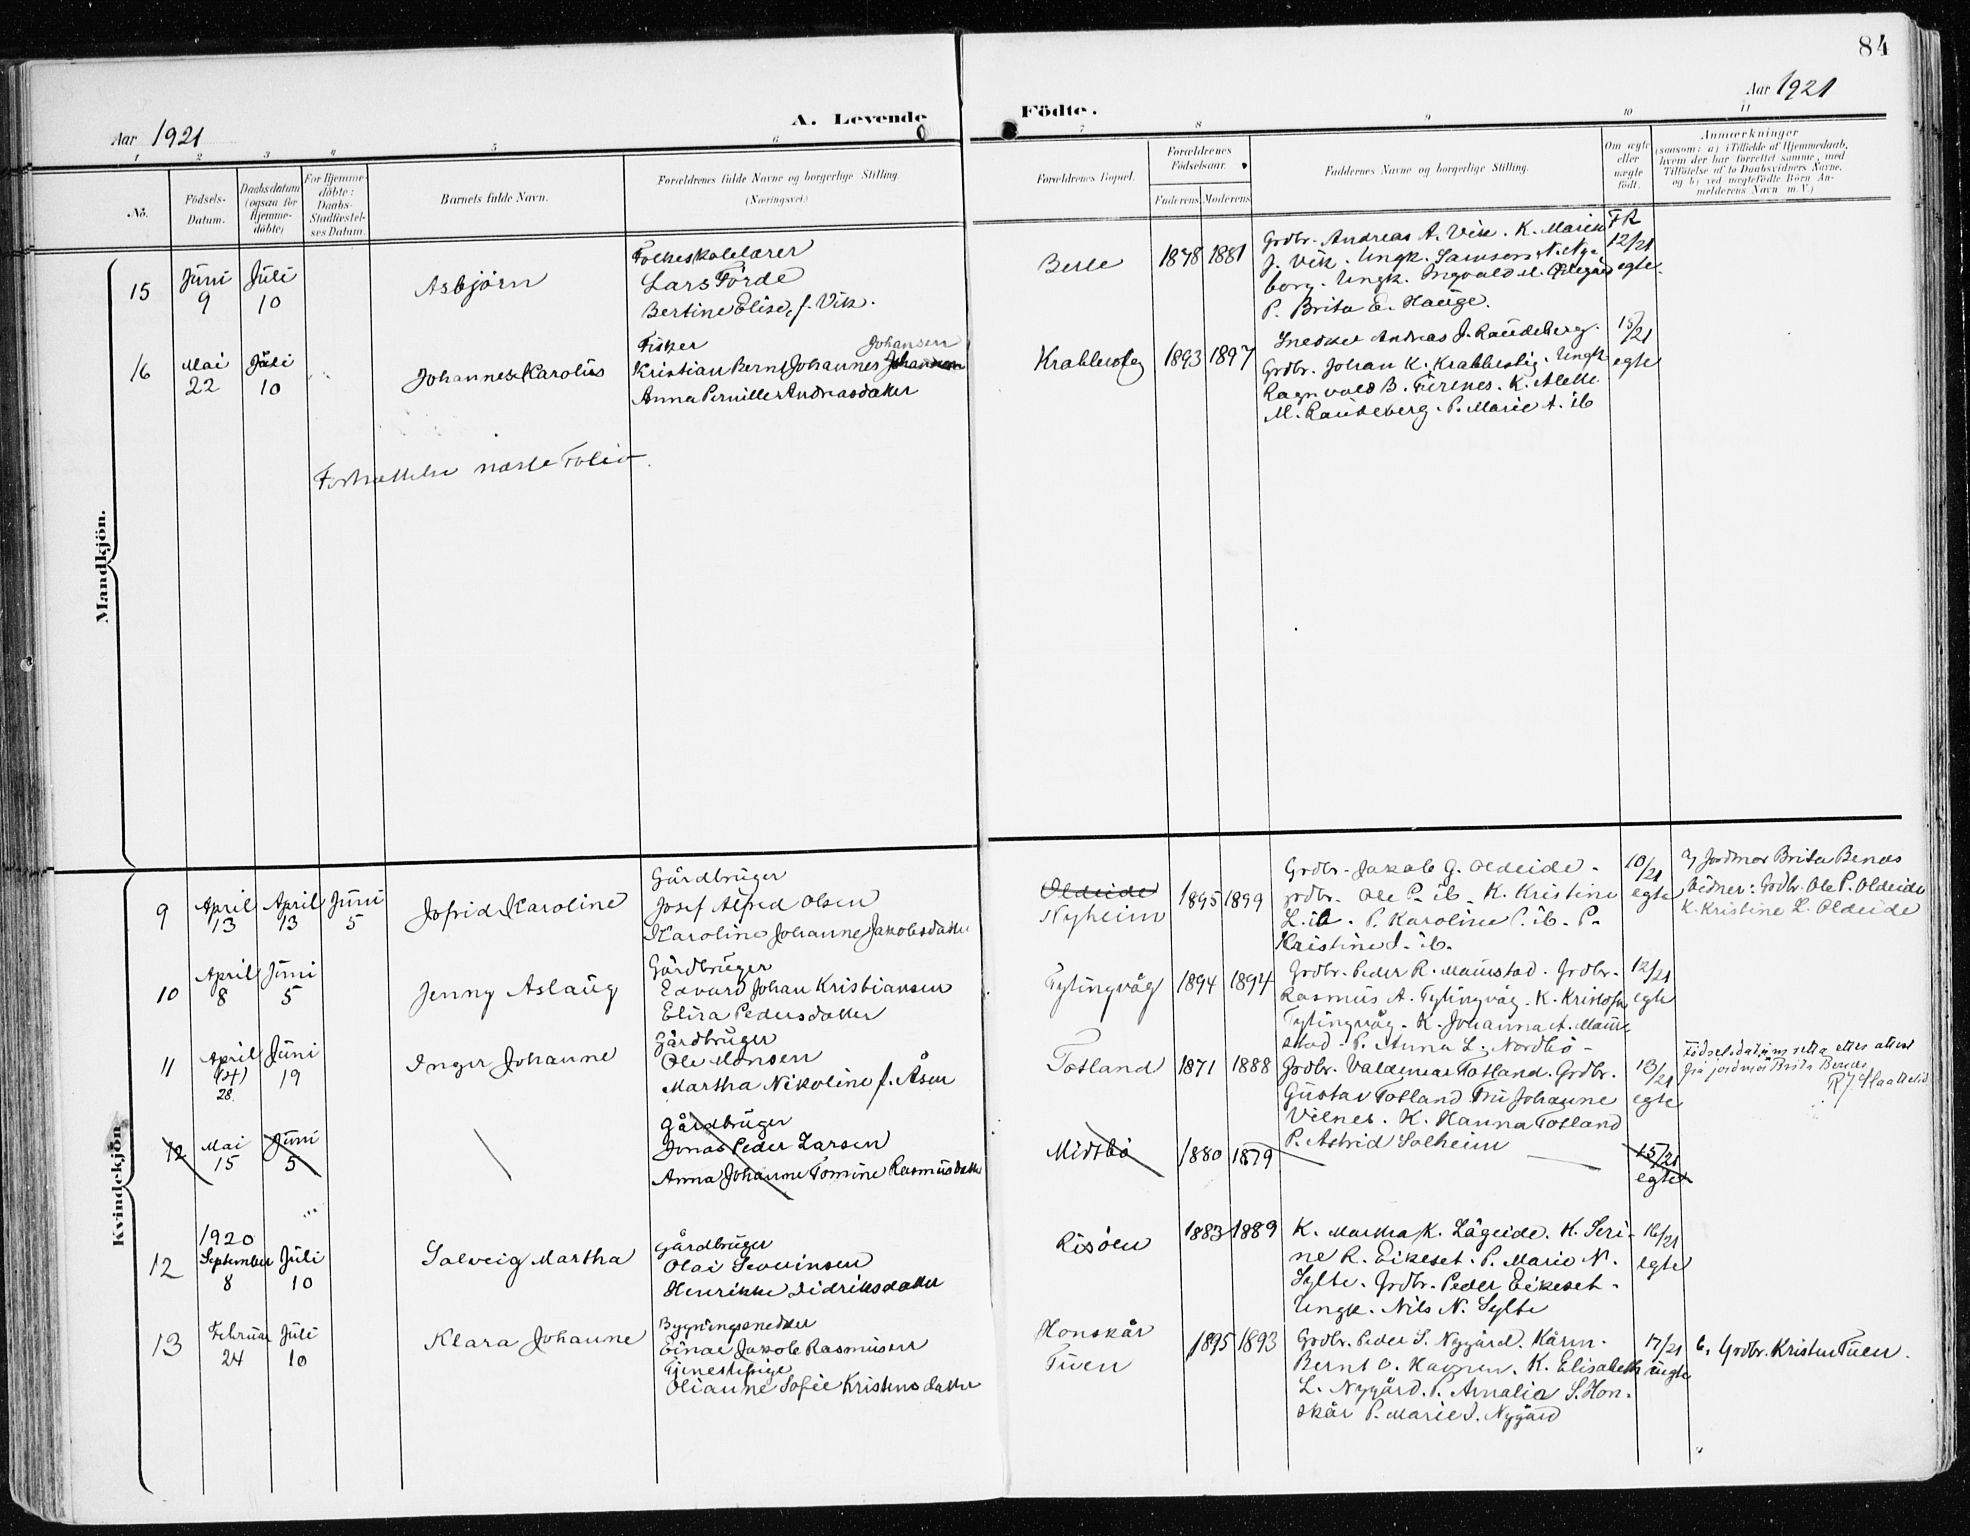 84
Aar 1921
A. Levende Födte.
Aar 1921
1 2 3 4 5 6 7 8 9 10 11
No.
Födsels-
Datum.
Daabsdatum
(ogsaa for
Hjemme-
döbte)
For Hjemme-
döbte:
Daabs-
Stadfæstel-
ses Datum.
Barnets fulde Navn.
Forældrenes fulde Navne og borgerlige Stilling.
(Næringsvei)
Forældrenes Bopæl.
Forældrenes
Födselsaar.
Faderens Moderens
Faddernes Navne og borgerlige Stilling.
Om ægte
eller
uægte
födt.
Anmærkninger
(saasom: a) i Tilfælde af Hjemmedaab,
hvem der har forrettet samme, med
Tilföielse af to Daabsvidners Navne,
og b) ved uægtefödte Börn An-
melderens Navn m. V.)
Mandkjön.
15
Juni
9
Juli
10
Asbjörn
Folkeskolelærer
Lars Förde
Bertine Elise, f. Vik.
Berle
1878 1881
Grdbr. Andreas A. Vik. K. Marie
J. Vik. Ungk. Samson N. Ny-
borg. Ungk. Ingvald M.
P. Brita E. Hauge.
FR
12/21
egte
16
Mai
22
Juli
10
Johannes Karolus
Fisker
Johansen
Kristian Bernt Johannes
Anna Pernille Andreasdatter
Krabbestig
1893 1897
Snedker Andreas J. Raudeberg.
Grdbr. Johan K. Krabbestig. Ungk.
Ragnvald B. Furenes. K. Alette
M. Raudeberg. P. Marie A. ib
15/21
egte
Fortsættelse næste Folio
Kvindekjön.
9
April
13
April
13
Juni
5
Jofrid Karoline
Gårdbruger
Josef Alfred Olsen
Karoline Johanne Jakobsdatter
Oldeide
Nyheim
1895 1899
Grdbr. Jakob G. Oldeide.
Grdbr. Ole P. ib. K. Kristine
L. ib. P. Karoline P. ib. P.
Kristine J. ib.
10/21
egte
a) Jordmor Brita Benæs
Vidner: Grdbr. Ole P. Oldeide
K. Kristine L. Oldeide
10
April
8
Juni
5
Jenny Aslaug
Gårdbruger
Edvard Johan Kristiansen
Elisa Pedersdatter
Tytingvåg
1894 1894
Grdbr. Peder R. Maurstad. Grdbr.
Rasmus A. Tytingvåg. K. Kristofa
Tytingvåg. K. Johanna A. Maur-
stad. P. Anna L. Nordbö
12/21
egte
11
April
(24)
28
Juni
19
Inger Johanne
Gårdbruger
Ole Monsen
Martha Nikoline f. Åsen
Totland
1871 1888
Grdbr. Valdemar Totland. Grdbr.
Gustav Totland Fru Johanne
Vilnes. K. Hanna Totland
P. Astrid Solheim
13/21
egte
Födselsdatum retta etter attest
frå jordmor Brita Benæs
12
Mai
15
Juni
5
Gårdbruger
Jonas Peder Larsen
Anna Johanne Tomine Rasmusdatter
Midtbö
1880 1879
15/21
egte
12
1920
September
8
Juli
10
Solveig Martha
Gårdbruger
Olai Severinsen
Henrikke Didriksdatter
Risöen
1883 1889
K. Martha K. Lågeide. K. Seri-
ne R. Eikeset. P. Marie N.
Sylte. Grdbr. Peder Eikeset.
Ungk. Nils N. Sylte
16/21
egte
13
Februar
24
Juli
10
Klara Johanne
Bygningssnedker
Einar Jakob Rasmusen
Tjenestepige
Olianne Sofie Kristensdatter
Honskår
Tuen
1895 1893
Grdbr. Peder S. Nygård. Kårm.
Bernt O. Havnen. K. Elisabeth
L. Nygård. P. Amalia S. Hon-
skår P. Marie J. Nygård
17/21
uegte
b, Grdbr. Kristen Tuen.